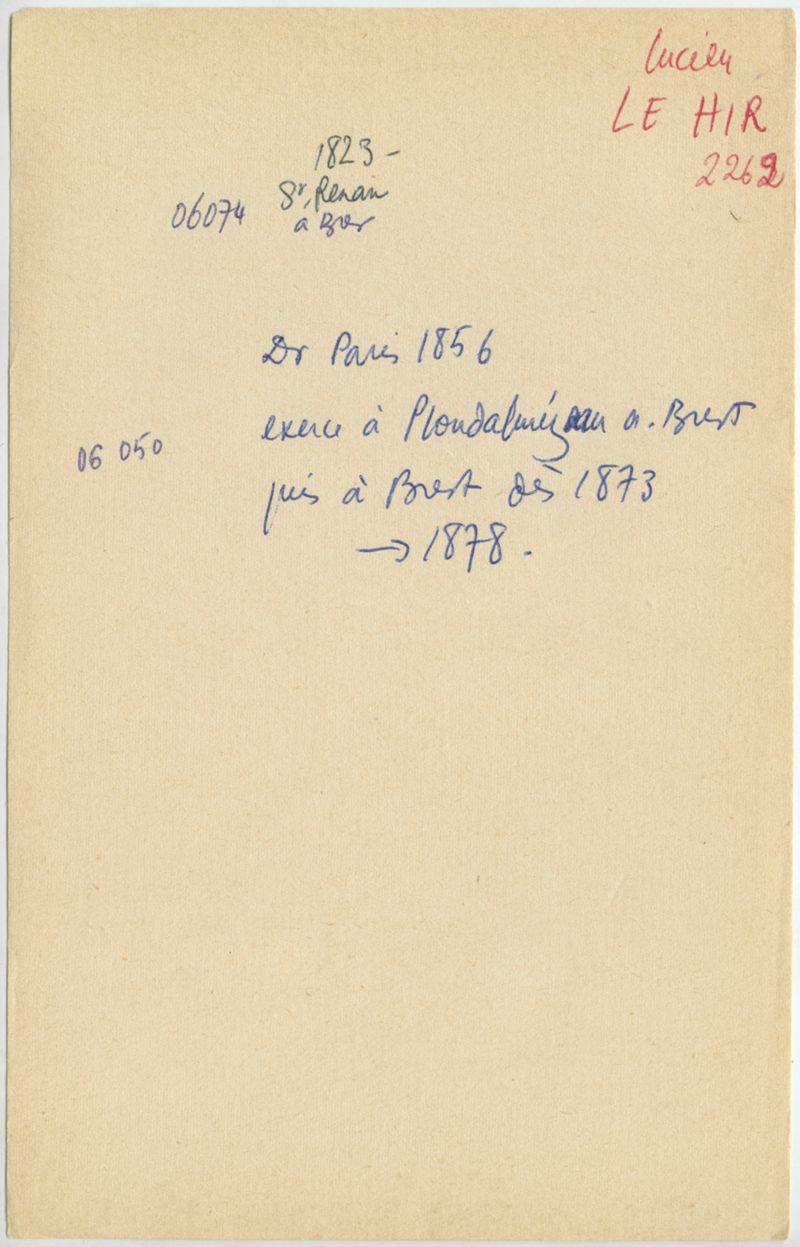 Lucien
LE HIR
2262
1823 -
St. Renan
06074 a Brest
Dr Paris 1856
exerce à Ploudalmézeau a. Brest
06 050
puis à Brest dès 1873
→ 1878.